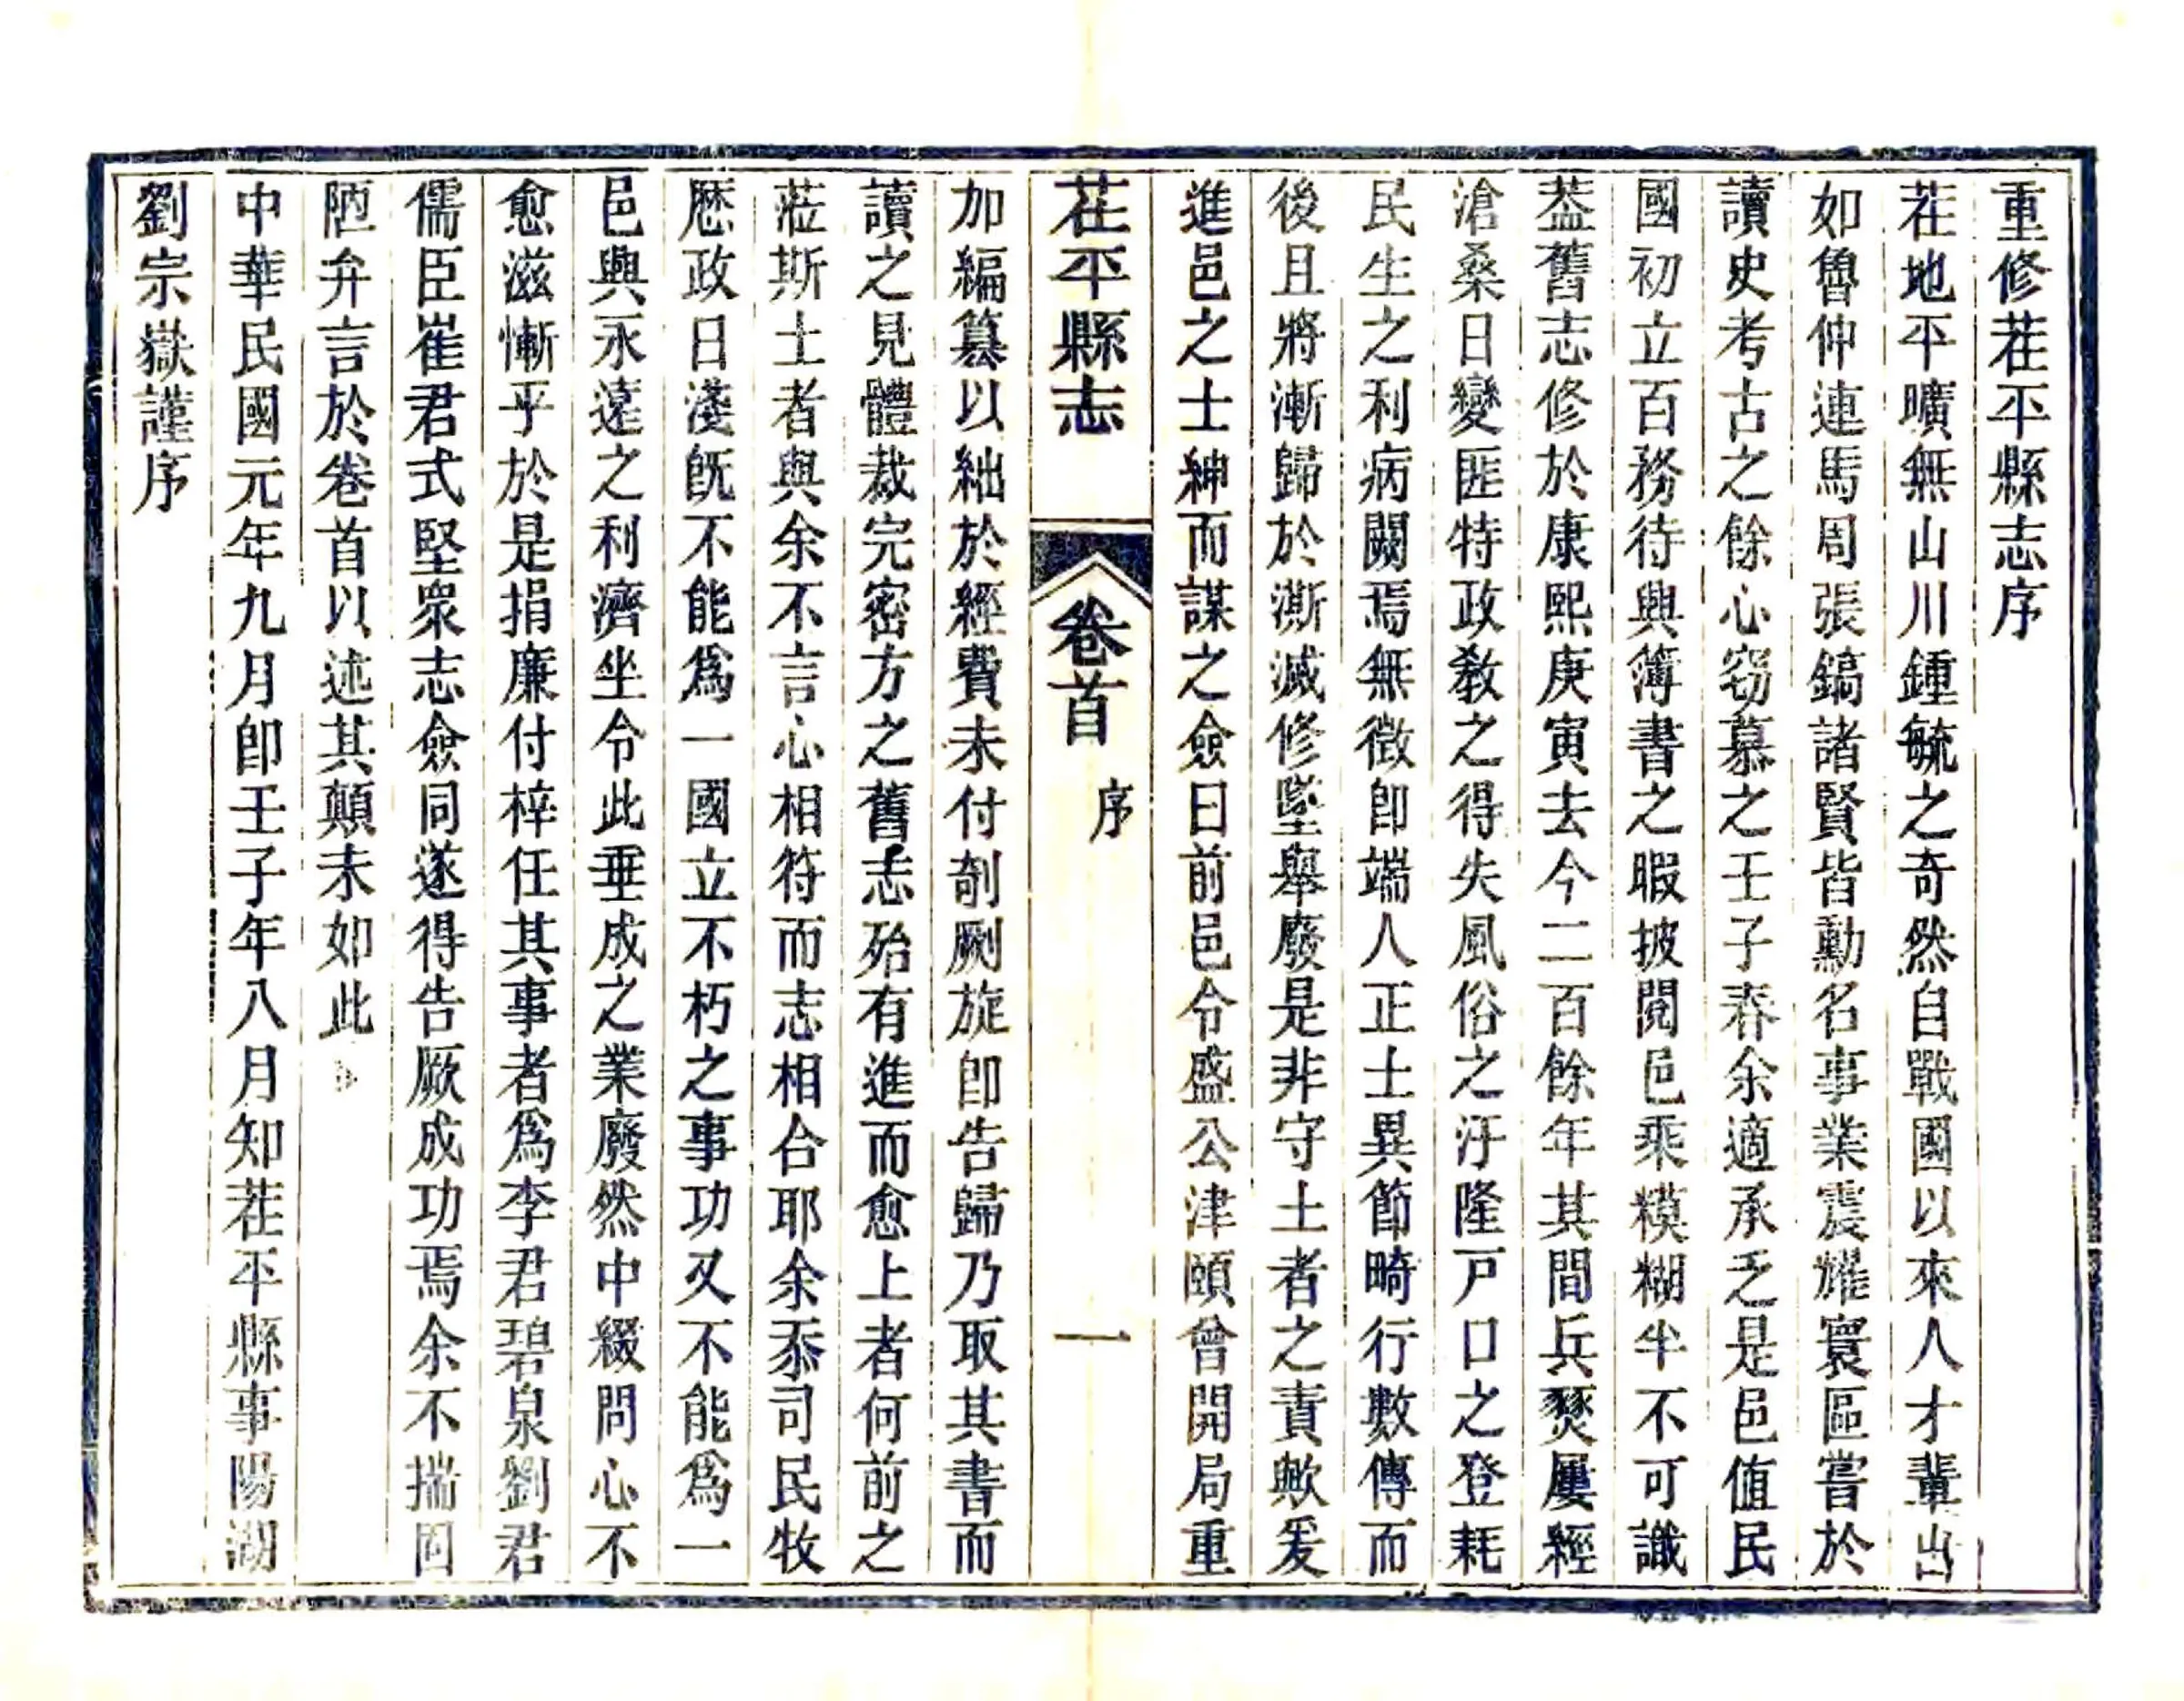 重修茌平縣志序
茌地平曠無山川鍾毓之奇然自戰國以來人才輩出
如魯仲連馬周張鎬諸賢皆勳名事業震耀寰區嘗於
讀史考古之餘心窃慕之壬子春余適承乏是邑值民
國初立百務待興簿書之暇披閱邑乘糢糊半不可識
葢舊志修於康熙庚寅去今二百餘年其間兵燹屢經
滄桑日變匪特政敎之得失風俗之汙隆戸口之登耗
民生之利病闕焉無徴卽端人正士異節畸行數傳而
後且將漸歸於澌滅修墜舉廢是非守土者之責歟爰
進邑之士紳而謀之僉曰前邑令盛公津頤曾開局重
茌平縣志
卷首
序
一
加編纂以絀於經費未付剞劂旋卽告歸乃取其書而
讀之見體裁完密方之舊志殆有進而愈上者何前之
蒞斯土者與余不言心相符而志相合耶余忝司民牧
歷政日淺旣不能爲一國立不朽之事功又不能爲一
邑興永遠之利濟坐令此垂成之業廢然中綴問心不
愈滋慚乎於是捐廉付梓任其事者爲李君碧泉劉君
儒臣崔君式堅衆志僉同遂得告厥成功焉余不揣固
陋弁言於卷首以述其顛末如此
中華民國元年九月卽壬子年八月知茌平縣事陽湖
劉宗嶽謹序